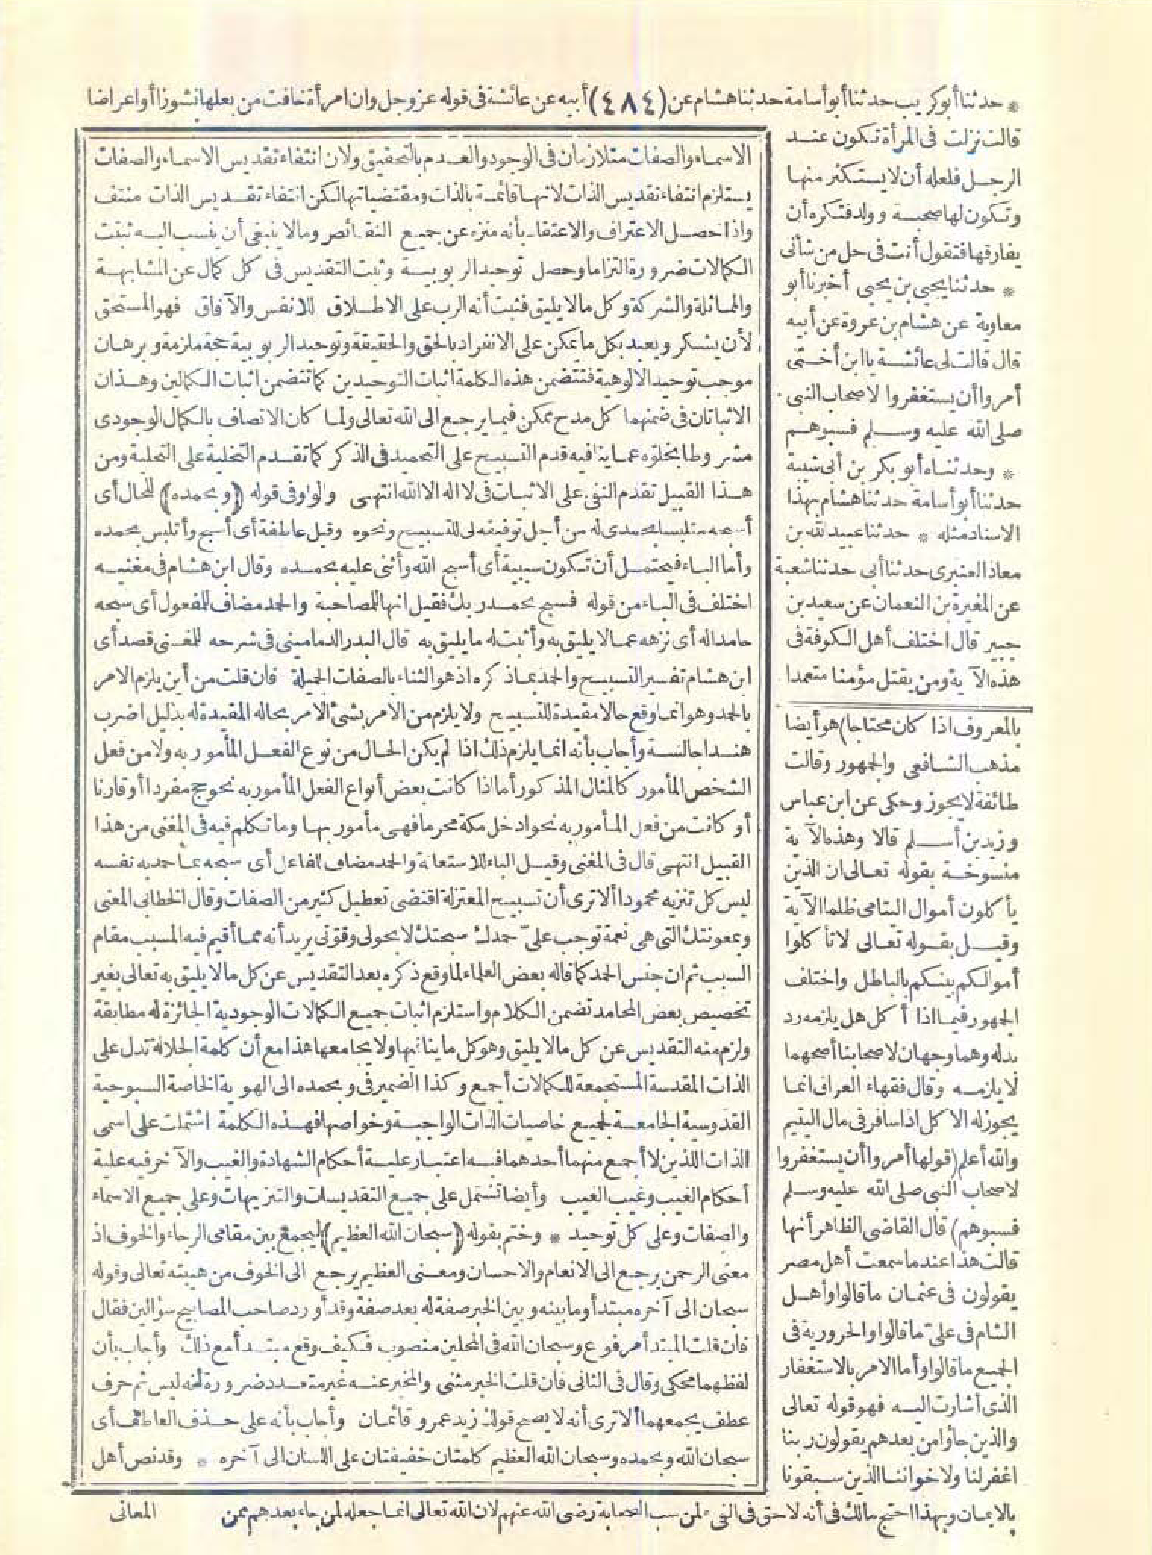 * حدثنا أبو كريب حدثنا أبو أسامة حدثنا هشام عن (٤٨٤) أبيه عن عائشة فى قوله عز وجل وان امرأة خافت من بعلها نشوزا أو اعراضا
قالت نزلت فى المرأة تكون عند
الرجل فلعله أن لا يستكثر منها
وتكون لها صحبة وولد فتكره أن
يفارقها فتقول أنت فى حل من شأنى
* حدثنا يحيى بن يحيى أخبرنا أبو
معاوية عن هشام بن عروة عن أبيه
قال قالت لى عائشة يا ابن أختى
أمروا أن يستغفروا لاصحاب النبى
صلى الله عليه وسلم فسبوهم
* وحدثناه أبو بكر بن أبى شيبة
حدثنا أبو أسامة حدثنا هشام بهذا
الاسناد مثله * حدثنا عبيد الله بن
معاذ العنبرى حدثنا أبى حدثنا شعبة
عن المغيرة بن النعمان عن سعيد بن
جبير قال اختلف أهل الكوفة فى
هذه الآية ومن يقتل مؤمنا متعمدا
بالمعروف اذا كان محتاجا) هو أيضا
مذهب الشافعى والجمهور وقالت
طائفة لا يجوز وحكى عن ابن عباس
وزيد بن أسلم قالا وهذه الآية
منسوخة بقوله تعالى ان الذين
يأكلون أموال اليتامى ظلما الآية
وقيل بقوله تعالى لا تأكلوا
أموالكم بينكم بالباطل واختلف
الجمهور فيما اذا أكل هل يلزمه رد
بدله وهما وجهان لاصحابنا أصحهما
لا يلزمه وقال فقهاء العراق انما
يجوز له الاكل اذا سافر فى مال اليتيم
والله أعلم (قولها أمروا أن يستغفروا
لاصحاب النبى صلى الله عليه وسلم
فسبوهم) قال القاضى الظاهر أنها
قالت هذا عند ما سمعت أهل مصر
يقولون فى عثمان ما قالوا وأهل
الشام فى علىّ ما قالوا والحرورية فى
الجميع ما قالوا وأما الامر بالاستغفار
الذى أشارت اليه فهو قوله تعالى
والذين جاؤا من بعدهم يقولون ربنا
اغفر لنا ولاخواننا الذين سبقونا
بالايمان وبهذا احتج مالك فى أنه لا حق فى الفىء لمن سب الصحابة رضى الله عنهم لان الله تعالى انما جعله لمن جاء بعدهم ممن
الاسماء والصفات متلازمان فى الوجود والعدم بالتحقيق ولان انتفاء تقديس الاسماء والصفات
يستلزم انتفاء تقديس الذات لانها قائمة بالذات ومقتضياتها لكن انتفاء تقديس الذات منتف
واذا حصل الاعتراف والاعتقاد بأنه منزه عن جميع النقائص وما لا ينبغى أن ينسب اليه ثبتت
الكمالات ضرورة التزاما وحصل توحيد الربوبية وثبت التقديس فى كل كمال عن المشابهة
والمماثلة والشركة وكل ما لا يليق فثبت أنه الرب على الاطلاق للانفس والآفاق فهو المستحق
لأن يشكر ويعبد بكل ما يمكن على الانفراد بالحق والحقيقة وتوحيد الربوبية حجة ملزمة وبرهان
موجب توحيد الالوهية فتتضمن هذه الكلمة اثبات التوحيدين كما تتضمن اثبات الكمالين وهذان
الاثباتان فى ضمنهما كل مدح يمكن فيما يرجع الى الله تعالى ولما كان الاتصاف بالكمال الوجودى
مشروطا بخلوه عما ينافيه قدم التسبيح على التحميد فى الذكر كما تقدم التخلية على التحلية ومن
هذا القبيل تقدم النفى على الاثبات فى لا اله الا الله انتهى والواو فى قوله (وبحمده) للحال أى
أسبحه متلبسا بحمدى له من أجل توفيقه لى للتسبيح ونحوه وقيل عاطفة أى أسبح وأتلبس بحمده
وأما الباء فيحتمل أن تكون سببية أى أسبح الله وأثنى عليه بحمده وقال ابن هشام فى مغنيه
اختلف فى الباء من قوله فسبح بحمد ربك فقيل انها للمصاحبة والحمد مضاف للمفعول أى سبحه
حامدا له أى نزهه عما لا يليق به وأثبت له ما يليق به قال البدر الدمامينى فى شرحه للمغنى قصد أى
ابن هشام تفسير التسبيح والحمد بما ذكره اذ هو الثناء بالصفات الجميلة فان قلت من أين يلزم الامر
بالحمد وهو انما وقع حالا مقيدة للتسبيح ولا يلزم من الامر بشئ الامر بحاله المقيدة له بدليل اضرب
هندا جالسة وأجاب بأنه انما يلزم ذلك اذا لم يكن الحال من نوع الفعل المأمور به ولا من فعل
الشخص المأمور كالمثال المذكور أما اذا كانت بعض أنواع الفعل المأمور به نحو حج مفردا أو قارنا
أو كانت من فعل المأمور به نحو ادخل مكة محرما فهى مأمور بها وما تكلم فيه فى المغنى من هذا
القبيل انتهى قال فى المغنى وقيل الباء للاستعانة والحمد مضاف للفاعل أى سبحه بما حمد به نفسه
ليس كل تنزيه محمودا ألا ترى أن تسبيح المعتزلة اقتضى تعطيل كثير من الصفات وقال الخطابى المعنى
وبمعونتك التى هى نعمة توجب علىّ حمدك سبحتك لا بحولى وقوّتى يريد أنه مما أقيم فيه المسبب مقام
السبب ثم ان جنس الحمد كما قاله بعض العلماء لما وقع ذكره بعد التقديس عن كل ما لا يليق به تعالى بغير
تخصيص بعض المحامد تضمن الكلام واستلزم اثبات جميع الكمالات الوجودية الجائزة له مطابقة
ولزم منه التقديس عن كل ما لا يليق وهو كل ما ينافيها ولا يجامعها هذا مع أن كلمة الجلالة تدل على
الذات المقدسة المستجمعة للكمالات أجمع وكذا الضمير فى وبحمده الى الهوية الخاصة السبوحية
القدوسية الجامعة لجميع خاصيات الذات الواجبة وخواصها فهذه الكلمة اشتملت على اسمى
الذات اللذين لا أجمع منهما أحدهما فيه اعتبار علية أحكام الشهادة والغيب والآخر فيه علية
أحكام الغيب وغيب الغيب وأيضا تشتمل على جميع التقديسات والتنزيهات وعلى جميع الاسماء
والصفات وعلى كل توحيد * وختم بقوله (سبحان الله العظيم) ليجمع بين مقامى الرجاء والخوف اذ
معنى الرحمن يرجع الى الانعام والاحسان ومعنى العظيم يرجع الى الخوف من هيبته تعالى وقوله
سبحان الى آخره مبتدأ وما بينه وبين الخبر صفة له بعد صفة وقد أورد صاحب المصابيح سؤالين فقال
فان قلت المبتدأ مرفوع وسبحان الله فى المحلين منصوب فكيف وقع مبتدأ مع ذلك وأجاب بأن
لفظهما محكى وقال فى الثانى فان قلت الخبر مثنى والمخبر عنه غير متعدد ضرورة أنه ليس ثم حرف
عطف يجمعهما ألا ترى أنه لا يصح قولك زيد عمرو قائمان وأجاب بأنه على حذف العاطف أى
سبحان الله وبحمده وسبحان الله العظيم كلمتان خفيفتان على اللسان الى آخره * وقد نص أهل
المعانى